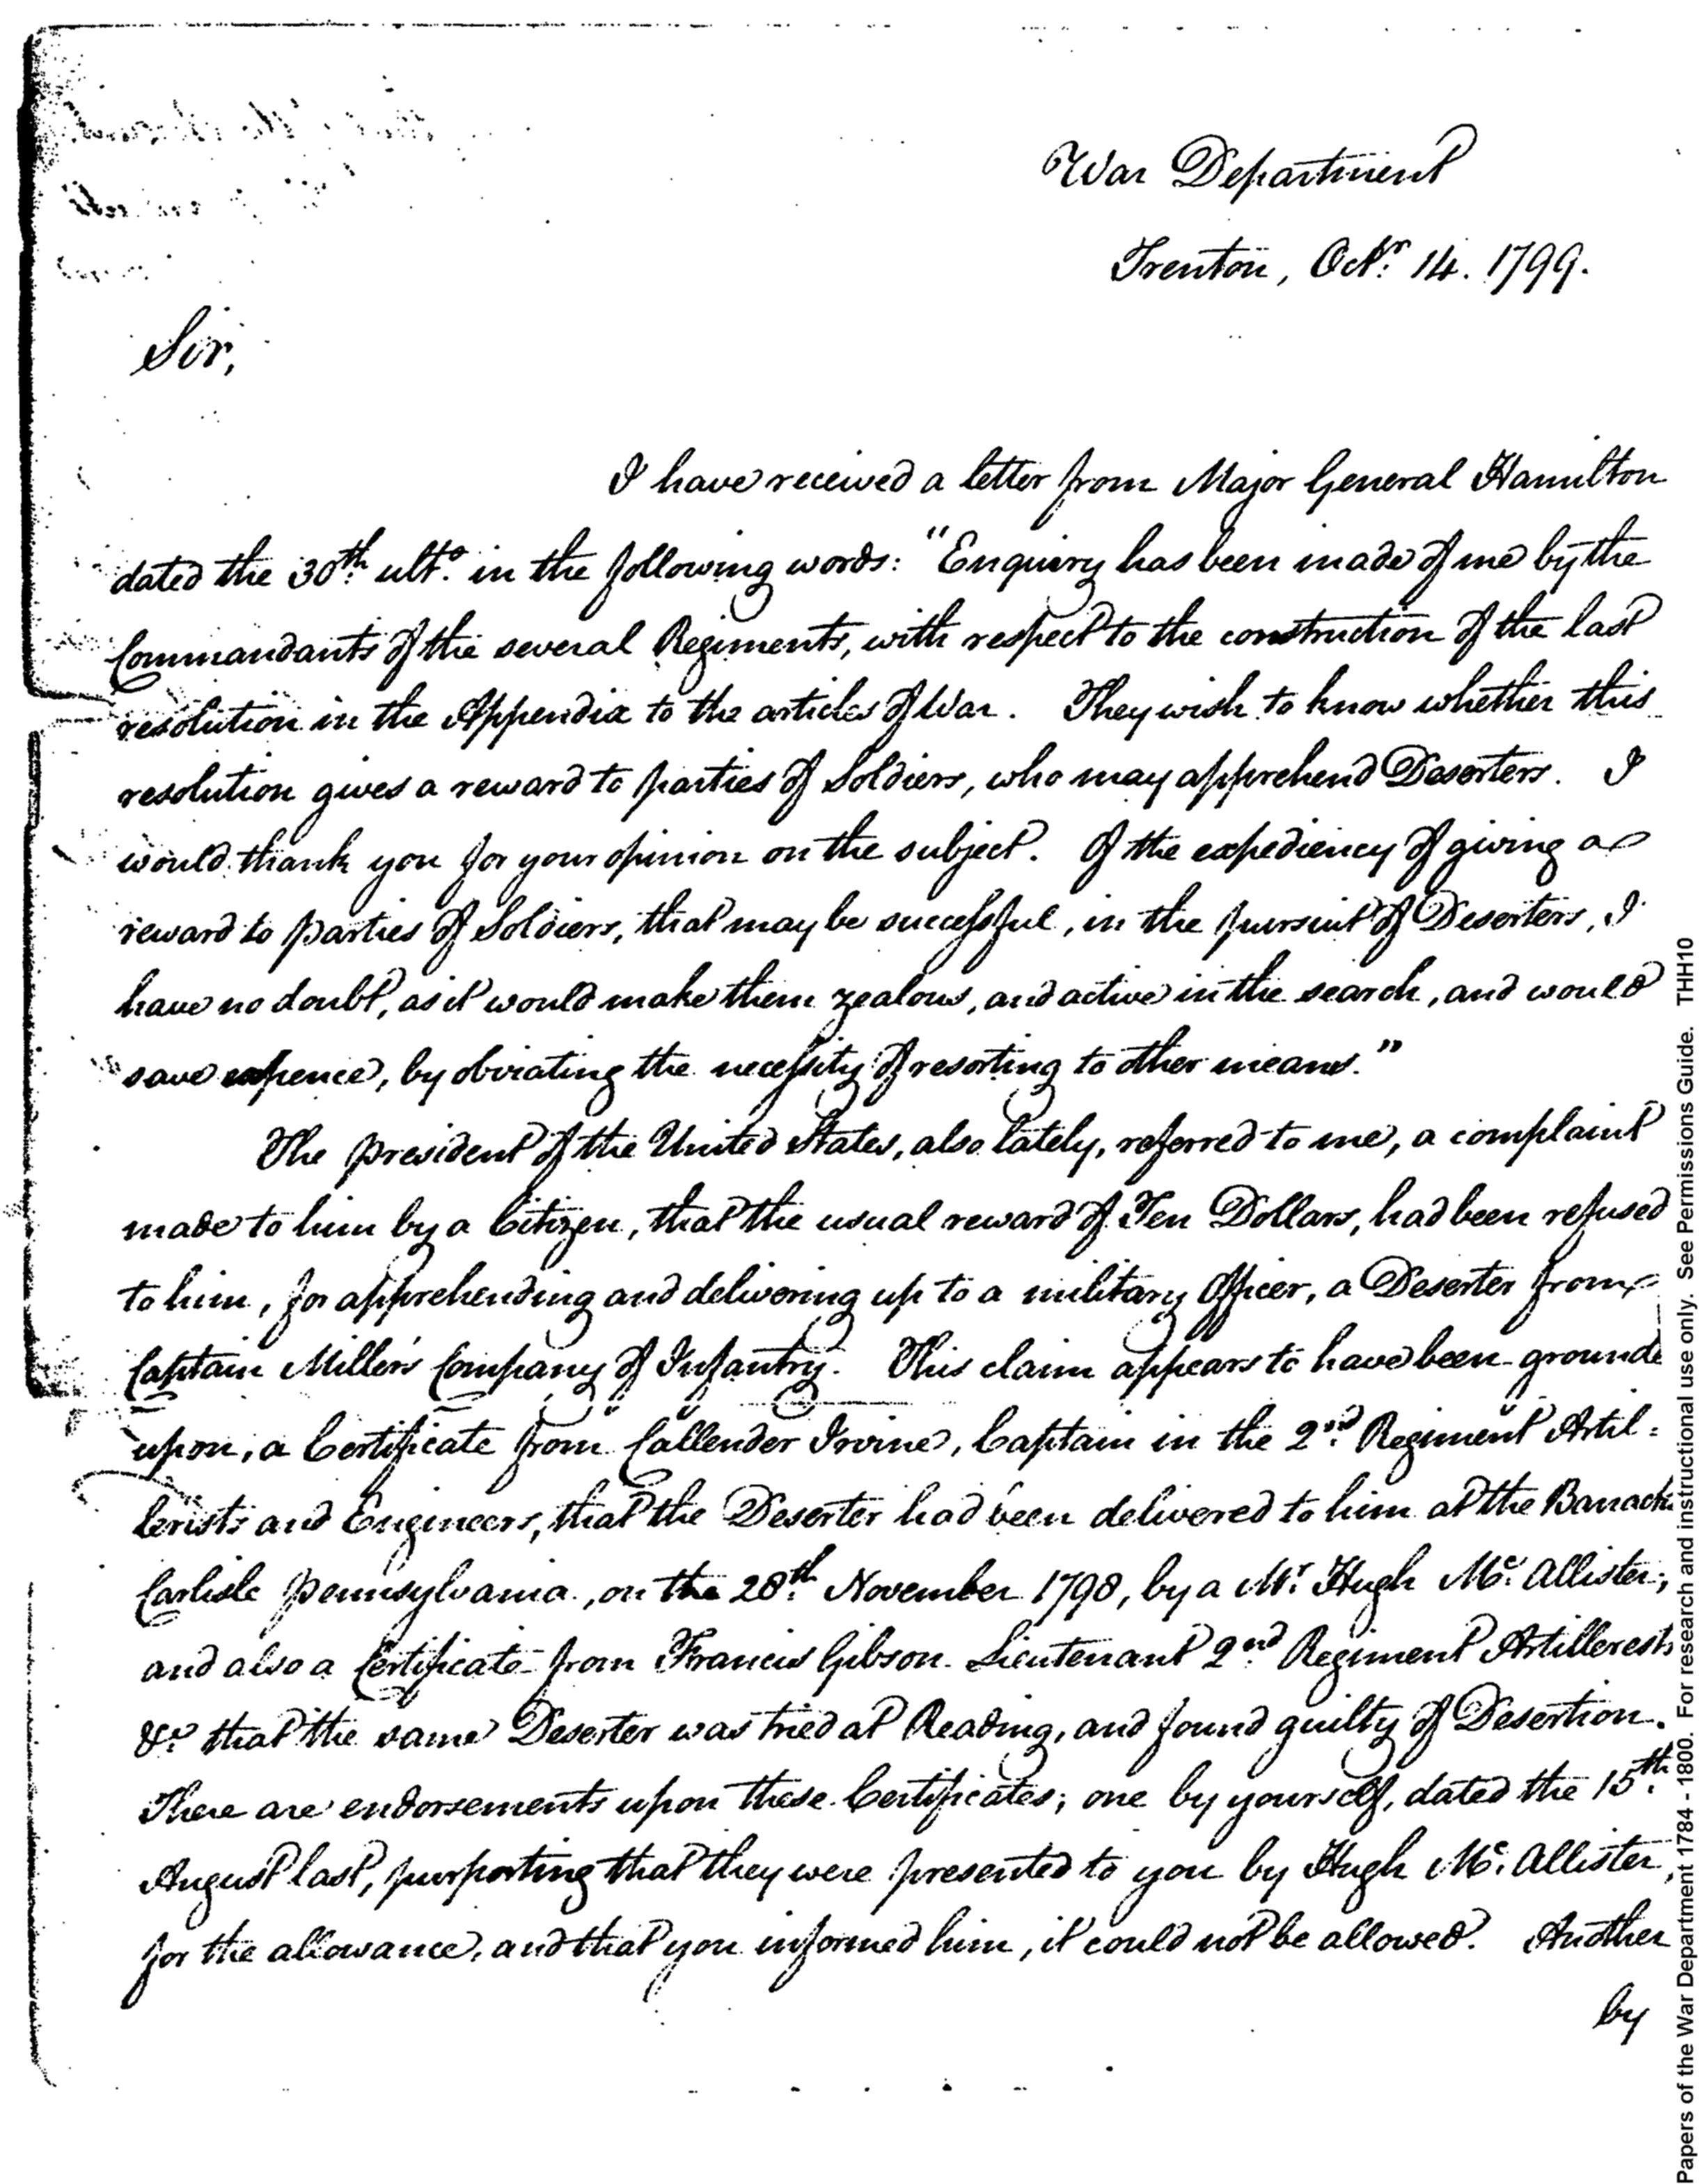 War Department
Trenton, Octr. 14. 1799.
Sir,
I have received a letter from Major General Hamilton
dated the 30th ulto. in the following words: "Enquiry has been made of me by the
Commandants of the several Regiments, with respect to the construction of the last
resolution in the Appendix to the articles of War. They wish to know whether this
resolution gives a reward to parties of Soldiers, who may apprehend Deserters. I
would thank you for your opinion on the subject. Of the expediency of giving a
reward to parties of Soldiers, that may be successful, in the pursuit of Deserters, I
have no doubt, as it would make them zealous, and active in the search, and would
save expence, by obviating the necessity of resorting to other means."
The President of the United States, also lately, referred to me, a complaint
made to him by a Citizen, that the usual reward of Ten Dollars, had been refused
to him, for apprehending and delivering up to a military Officer, a Deserter from
Captain Miller's Company of Infantry. This claim appears to have been grounde
upon, a Certificate from Callender Irvine, Captain in the 2nd Regiment Artil=
lerists and Engineers, that the Deserter had been delivered to him at the Barracks
Carlisle Pennsylvania, on the 28th November 1798, by a Mr. Hugh Mc. Allister;
and also a Certificate from Francis Gibson Lieutenant 2nd Regiment Artillerests
&c. that the same Deserter was tried at Reading, and found guilty of Desertion.
There are endorsements upon these Certificates; one by yourself, dated the 15th
August last, purporting that they were presented to you by Hugh Mc. Allister,
for the allowance, and that you informed him, it could not be allowed. Another
by
Papers of the War Department 1784 - 1800. For research and instructional use only. See Permissions Guide. THH10